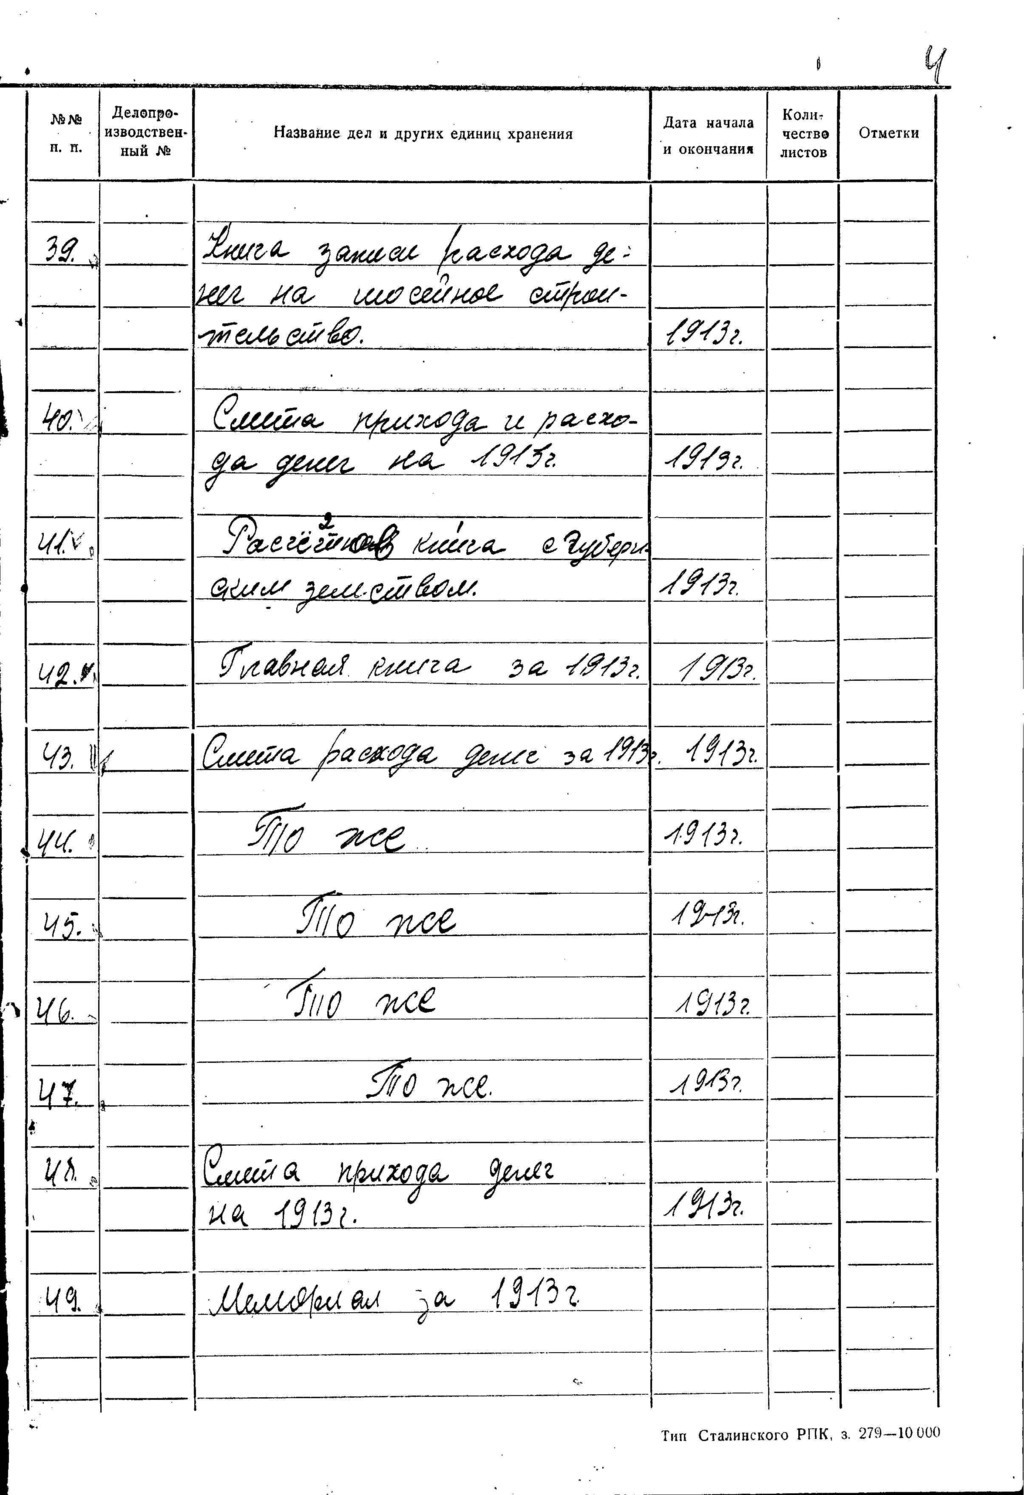 4
№№ п. п. Делопроизводственный № Название дел и других единиц хранения Дата начала и окончания Количество листов Отметки
39. Книга записи расхода де-
нег на шоссейное строи-
тельство. 1913г.
40. Смета прихода и расхо-
да денег на 1913г. 1913г.
41. книга с Губерн
ским земством. 1913г.
42. Главная книга за 1913г. 1913г.
43. Смета расхода денег за 1913г. 1913г.
44. То же 1913г.
45. То же 1913г.
46. То же 1913г.
47. То же. 1913г.
48. Смета прихода денег
на 1913г. 1913г.
49. Мемориал за 1913г
Тип Сталинского РПК, з. 279—10 000